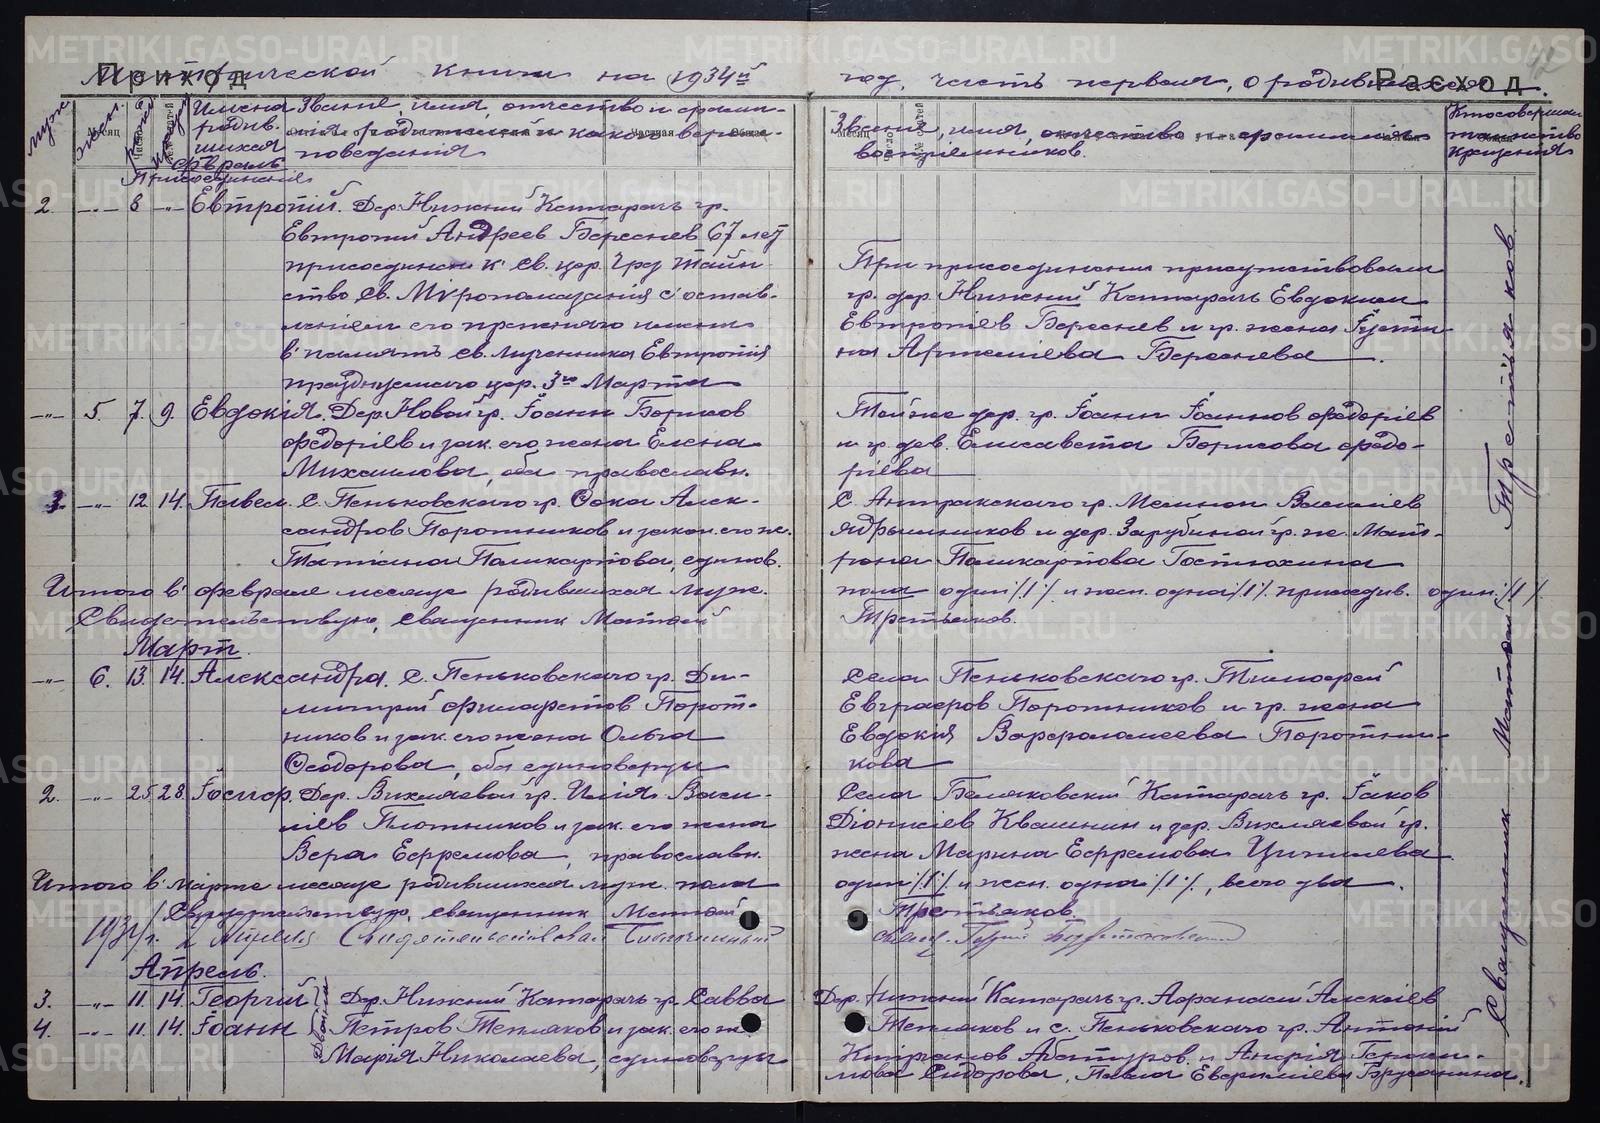 Метрической книги на 1934й год, часть первая, о родившихся.
Приход
Расход
42
муж.
жен.
Имена родив-
шихся
Звание, имя, отчество и фами-
лия родителей и какого веро-
исповедания
Звание, имя, отчество и фамилия
восприемников.
Кто совершал
таинство
крещения
Февраль
Присоединение
2. -"- 8 -"- Евтропий. Дер. Нижний Катарач гр.
Евтропий Андреев Береснев 67 лет
присоединен к св. цер. чрез таин-
ство св. Мѵропомазания с остав-
лением его прежняго имени
в память св. мученика Евтропия
празднуемаго цер. 3го Марта
При присоединении присутствовали
гр. дер. Нижний Катарач Евдоким
Евтропіев Береснев и гр. жена Іусти-
на Артеміева Береснева.
-"- 5. 7. 9. Евдокія. Дер. Новой гр. Іоанн Борисов
Федоріев и зак. его жена Елена
Михаилова, оба православн.
Той же дер. гр. Іоанн Іоаннов Федоріев
и гр. дев. Елисавета Борисова Федо-
ріева
3. -"- 12. 14. Павел. С. Пеньковскаго гр. Фока Алек-
сандров Поротников и закон. его же.
Татіана Поликарпова, единов.
С. Антракскаго гр. Мемнон Василіев
Ядрышников и дер. Зарубиной гр. же. Мат-
рона Поликарпова Гостюхина
Итого в феврале месяце родившихся муж.
пола один /1/ и жен. одна /1/ присоедин. один /1/.
Свидетельствую, священник Матфей
Третьяков.
Март.
-"- 6. 13. 14. Александра. С. Пеньковскаго гр. Ди-
митрий Филаретов Порот-
ников и зак. его жена Ольга
Феодорова, оба единоверцы
Села Пеньковскаго гр. Тимофей
Евграфов Поротников и гр. жена
Евдокия Варфоломеева Поротни-
кова
2. -"- 25. 28. Іосиф. Дер. Вихляевой гр. Илія Васи-
ліев Плотников и зак. его жена
Вера Ефремова, православн.
Села Беляковский Катарач гр. Іаков
Діонисіев Квашнин и дер. Вихляевой гр.
жена Марина Ефремова
Итого в Марте месяце родившихся муж. пола
один /1/ и жен. одна /1/, всего два.
Свидетельствую, священник Матфей
Третьяков
Свидетельствовал Благочинный
свящ.
Апрель.
3. -"- 11. 14. Георгий
4. -"- 11. 14. Іоанн
двойни
Дер. Нижний Катарач гр. Савва
Петров Тепляков и зак. его ж.
Марія Николаева, единоверцы
Дер. Нижний Катарач гр. Афанасий Алексіев
Тепляков и с. Пеньковскаго гр. Антоний
Кипріанов Абатуров и Анфія Гераси-
мова Сидорова, Павла Евфиміева Брусянина.
Священник Матфей Третьяков
METRIKI.GASO-URAL.RU